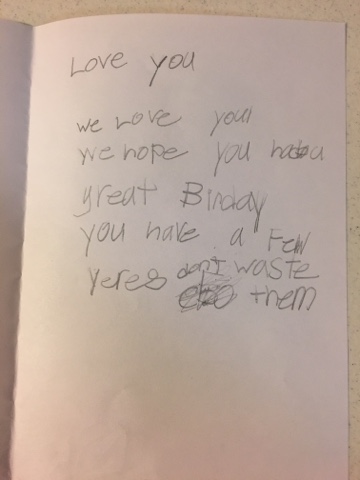 Love you
we Love you!
we hope you hava
great Birday
you have a Few
yeres don't waste
them